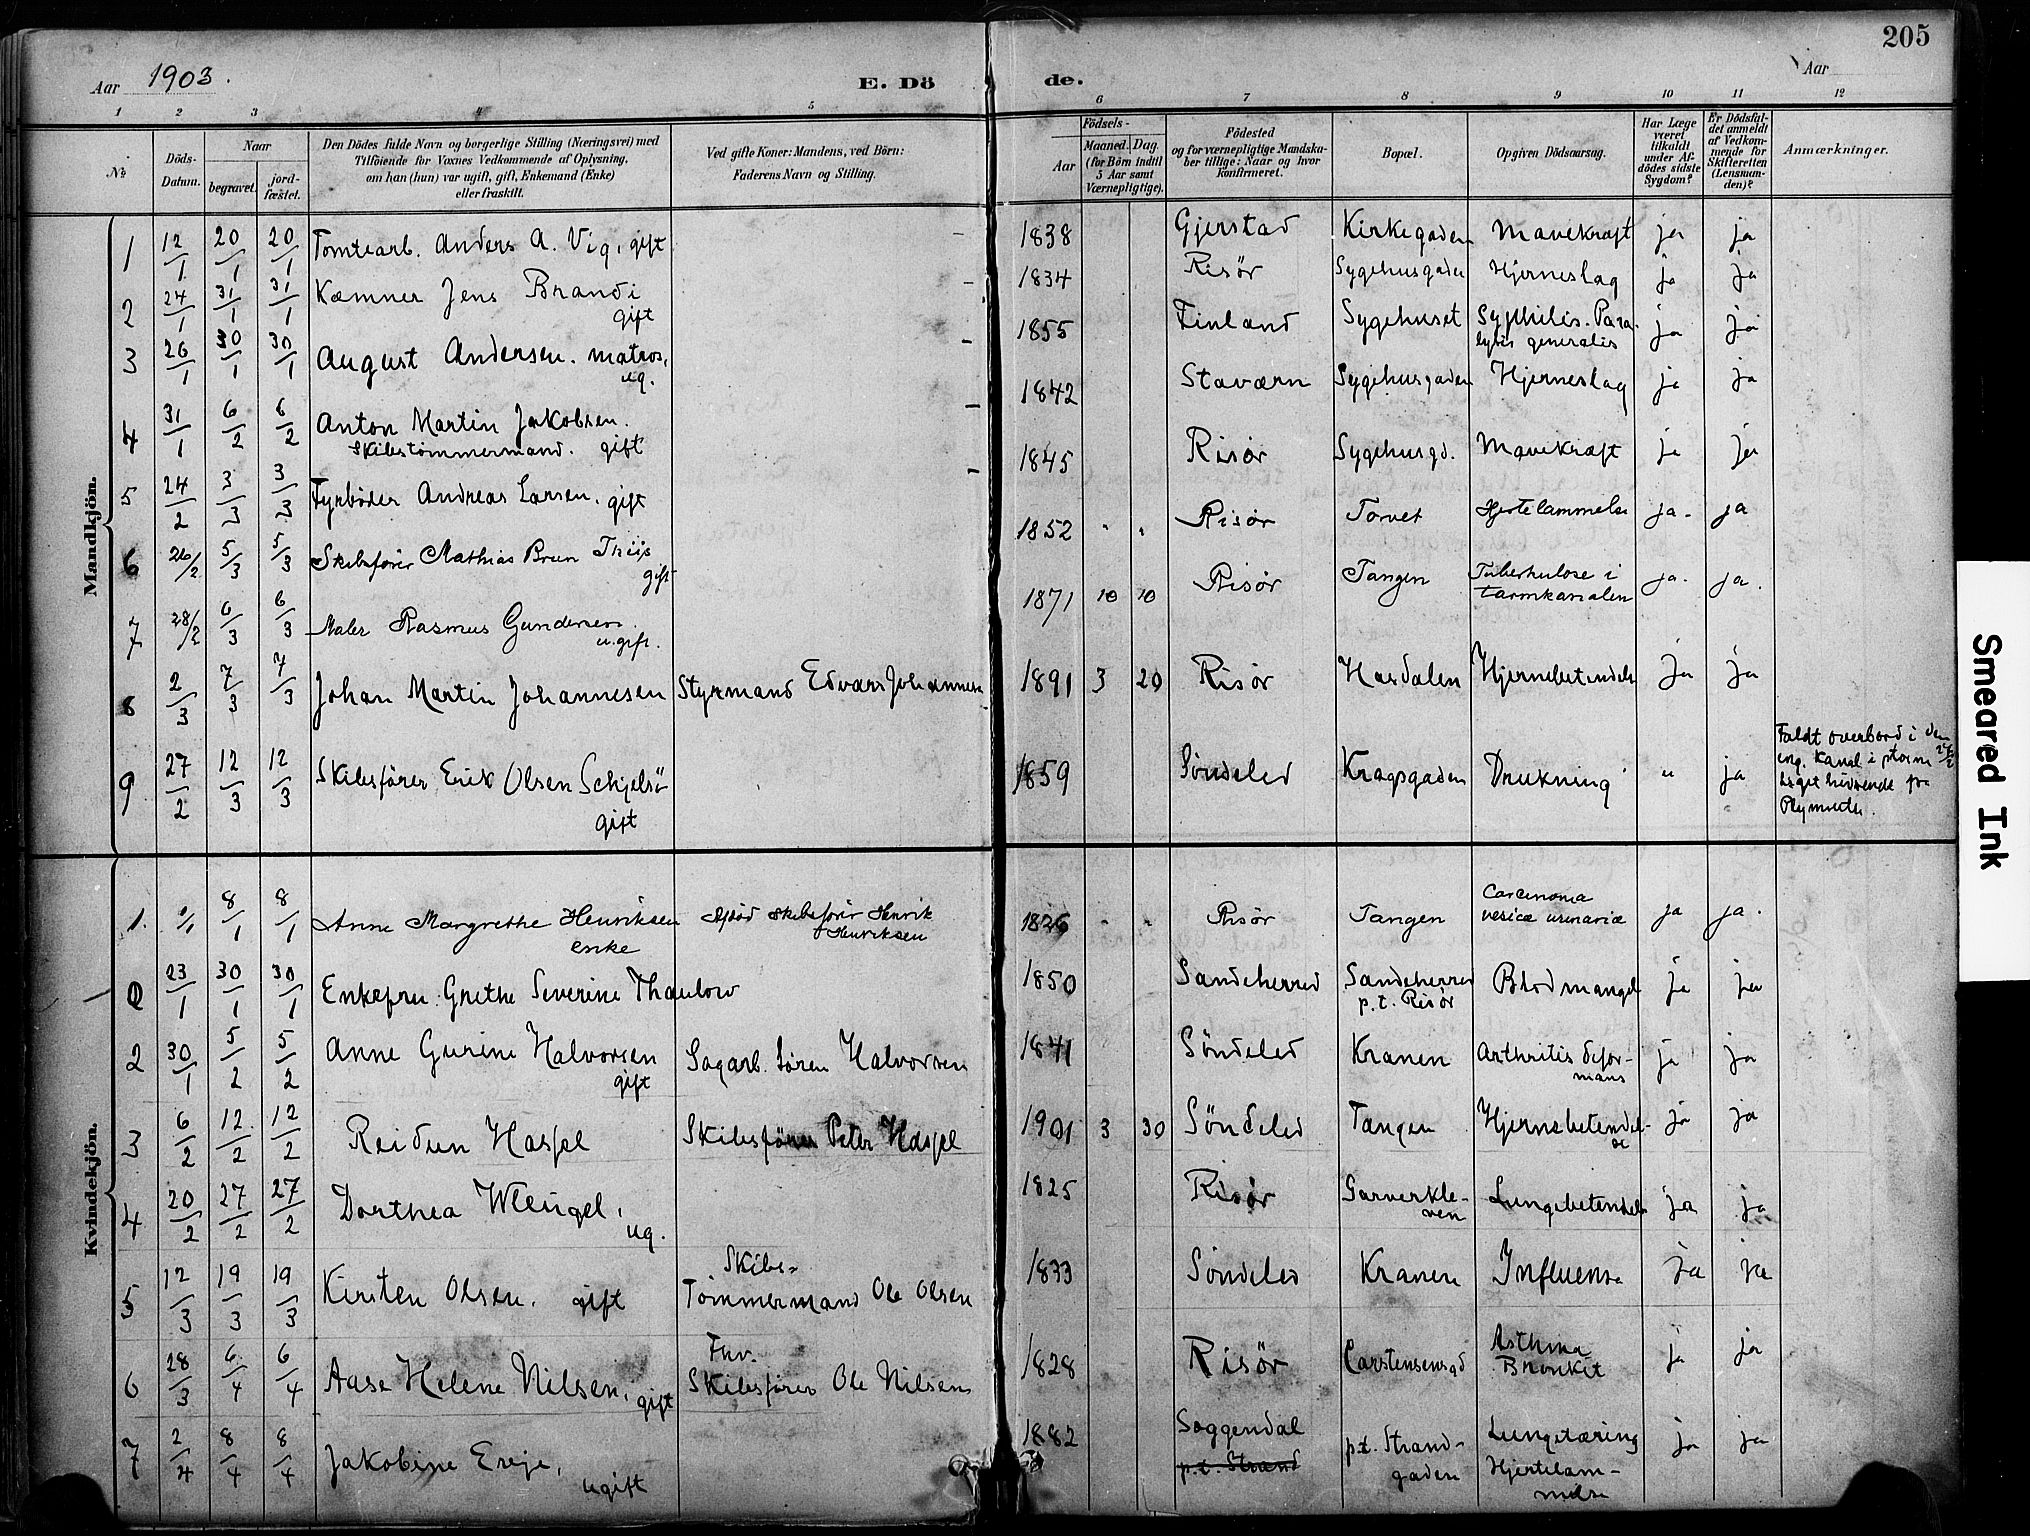 205
Aar 1903.
E. Dö de.
Aar
1 2 3 4 5 6 7 8 9 10 11 12
№
Döds-Datum.
Naar
begravet.
jord-fæstet.
Den Dödes fulde Navn og borgerlige Stilling (Næringsvei) med
Tilföiende for Voxnes Vedkommende af Oplysning,
om han (hun) var ugift, gift, Enkemand (Enke)
eller fraskilt.
Ved gifte Koner: Mandens, ved Börn:
Faderens Navn og Stilling.
Födsels-
Aar
Maaned. Dag.
(for Börn indtil
5 Aar samt
Værnepligtige).
Födested
og for værnepligtige Mandska-
ber tillige: Naar og hvor
konfirmeret.
Bopæl.
Opgiven Dödsaarsag.
Har Læge
været
tilkaldt
under Af-
dödes sidste
Sygdom?
Er Dödsfal-
det anmeldt
af Vedkom-
mende for
Skifteretten
(Lensman-
den)?
Anmærkninger.
Mandkjön.
1 12/1 20/1 20/1 Tomtearb. Anders A. Vig, gift 1838 Gjerstad Kirkegaden Mavekræft ja ja
2 24/1 31/1 31/1 Kæmner Jens Brandi gift 1834 Risør Sygehusgaden Hjerneslag ja ja
3 26/1 30/1 30/1 August Andersen. matros, ug. 1855 Finland Sygehuset Syphilis. Paralysis generalis ja ja
4 31/1 6/2 6/2 Anton Martin Jakobsen. Skibstømmermand. gift 1842 Staværn Sygehusgaden Hjerneslag ja ja
5 24/2 3/3 3/3 Fyrbøder Andreas Larsen. gift 1845 Risør Sygehusgd. Mavekræft ja ja
6 26/2 5/3 5/3 Skibsfører Mathias Brun Thiis gift 1852 " " Risør Torvet Hjertelammelse ja. ja
7 28/2 6/3 6/3 Maler Rasmus Gundersen. u.gift. 1871 10 10 Risør Tangen Tuberkulose i tarmkanalen ja. ja.
8 2/3 7/3 7/3 Johan Martin Johannesen Styrmand Edvard Johannesen 1891 3 20 Risør Hasdalen Hjernebetændelse ja ja
9 27/2 12/3 12/3 Skibsfører Erik Olsen Schjelsö gift 1859 Søndeled Kragsgaden Drukning " ja
Faldt overbord i den
eng. Kanal i storm 27/2
Liget hidsendt fra
Plymouth.
Kvindekjön.
1. 1/1 8/1 8/1 Anne Margrethe Henriksen enke Afdød skibsfører Henrik Henriksen 1826 " " Risør Tangen Carcenoma vesicæ urinariæ ja ja.
23/1 30/1 30/1 Enkefru Grethe Severine Thaulow 1850 Sandeherred Sandeherred p.t. Risør Blodmangel ja ja
2 30/1 5/2 5/2 Anne Gurine Halvorsen gift Sagarb. Søren Halvorsen 1841 Søndeled Kranen Arthritis deformans ja ja
3 6/2 12/2 12/2 Reidun Hasfel Skibsfører Peter Hasfel 1901 3 30 Søndeled Tangen Hjernebetændelse ja ja
4 20/2 27/2 27/2 Dorthea Wleugel, ug. 1825 Risør Garverkleven Lungebetændelse ja ja
5 12/3 19/3 19/3 Kirsten Olsen. gift Skibs-Tømmermand Ole Olsen 1833 Søndeled Kranen Influensa ja ja
6 28/3 6/4 6/4 Aase Helene Nilsen, gift Fhv. Skibsfører Ole Nilsen 1828 Risør Carstensensgd Asthma Bronkit ja ja
7 2/4 8/4 8/4 Jakobine Ereje, ugift 1882 Soggendal p.t. Strand p.t. Strandgaden Lungetæring Hjertelammelse ja ja
Smeared Ink